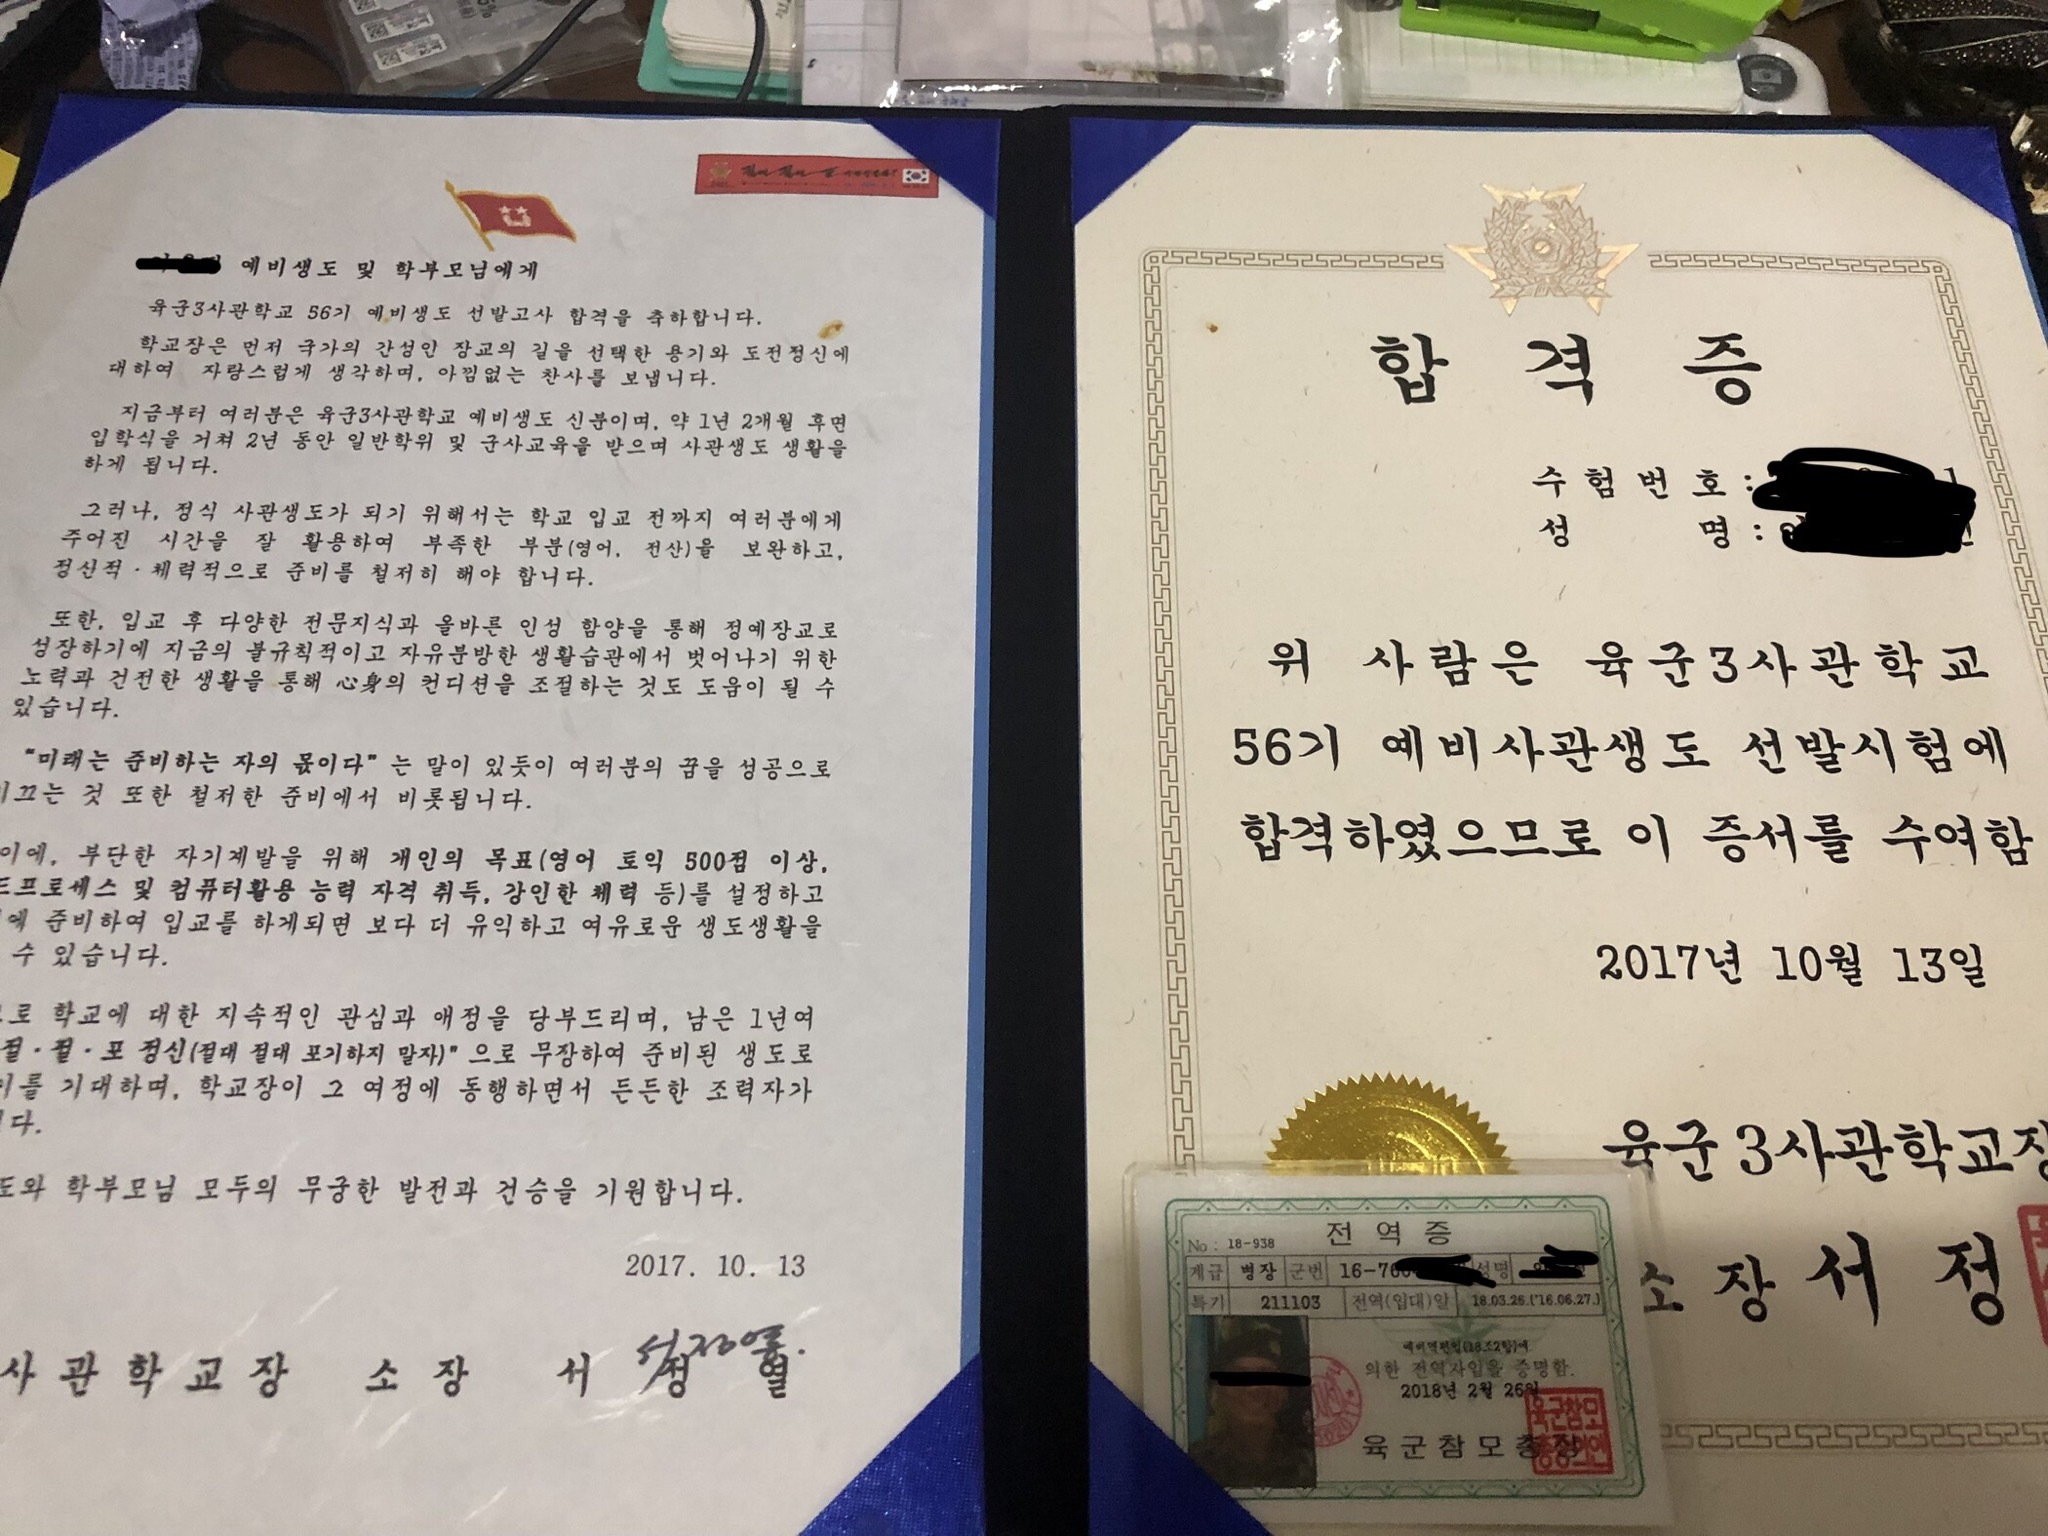 예비생도 및 학부모님에게
육군3사관학교 56기 예비생도 선발고사 합격을 축하합니다.
학교장은 먼저 국가의 간성인 장교의 길을 선택한 용기와 도전정신에
대하여 자랑스럽게 생각하며, 아낌없는 찬사를 보냅니다.
지금부터 여러분은 육군3사관학교 예비생도 신분이며, 약 1년 2개월 후면
입학식을 거쳐 2년 동안 일반학위 및 군사교육을 받으며 사관생도 생활을
하게 됩니다.
그러나, 정식 사관생도가 되기 위해서는 학교 입교 전까지 여러분에게
주어진 시간을 잘 활용하여 부족한 부분(영어, 전산)을 보완하고,
정신적·체력적으로 준비를 철저히 해야 합니다.
또한, 입교 후 다양한 전문지식과 올바른 인성 함양을 통해 정예장교로
성장하기에 지금의 불규칙적이고 자유분방한 생활습관에서 벗어나기 위한
노력과 건전한 생활을 통해 心身의 컨디션을 조절하는 것도 도움이 될 수
있습니다.
"미래는 준비하는 자의 몫이다" 는 말이 있듯이 여러분의 꿈을 성공으로
끄는 것 또한 철저한 준비에서 비롯됩니다.
이에, 부단한 자기계발을 위해 개인의 목표(영어 토익 500점 이상,
드프로세스 및 컴퓨터활용 능력 자격 취득, 강인한 체력 등)를 설정하고
에 준비하여 입교를 하게되면 보다 더 유익하고 여유로운 생도생활을
수 있습니다.
로 학교에 대한 지속적인 관심과 애정을 당부드리며, 남은 1년여
절·절·포 정신(절대 절대 포기하지 말자)" 으로 무장하여 준비된 생도로
이를 기대하며, 학교장이 그 여정에 동행하면서 든든한 조력자가
다.
도와 학부모님 모두의 무궁한 발전과 건승을 기원합니다.
2017. 10. 13
사관학교장 소장 서정열
합격증
수험번호 :
성 명 :
위 사람은 육군3사관학교
56기 예비사관생도 선발시험에
합격하였으므로 이 증서를 수여함
2017년 10월 13일
육군3사관학교장
소장 서 정
전역증
No : 18-938
계급 병장 군번 16-76 성명
특기 211103 전역(임대)일 18.03.26.('16.06.27.)
의한 전역자임을 증명함.
2018년 2월 26일
육군참모총장